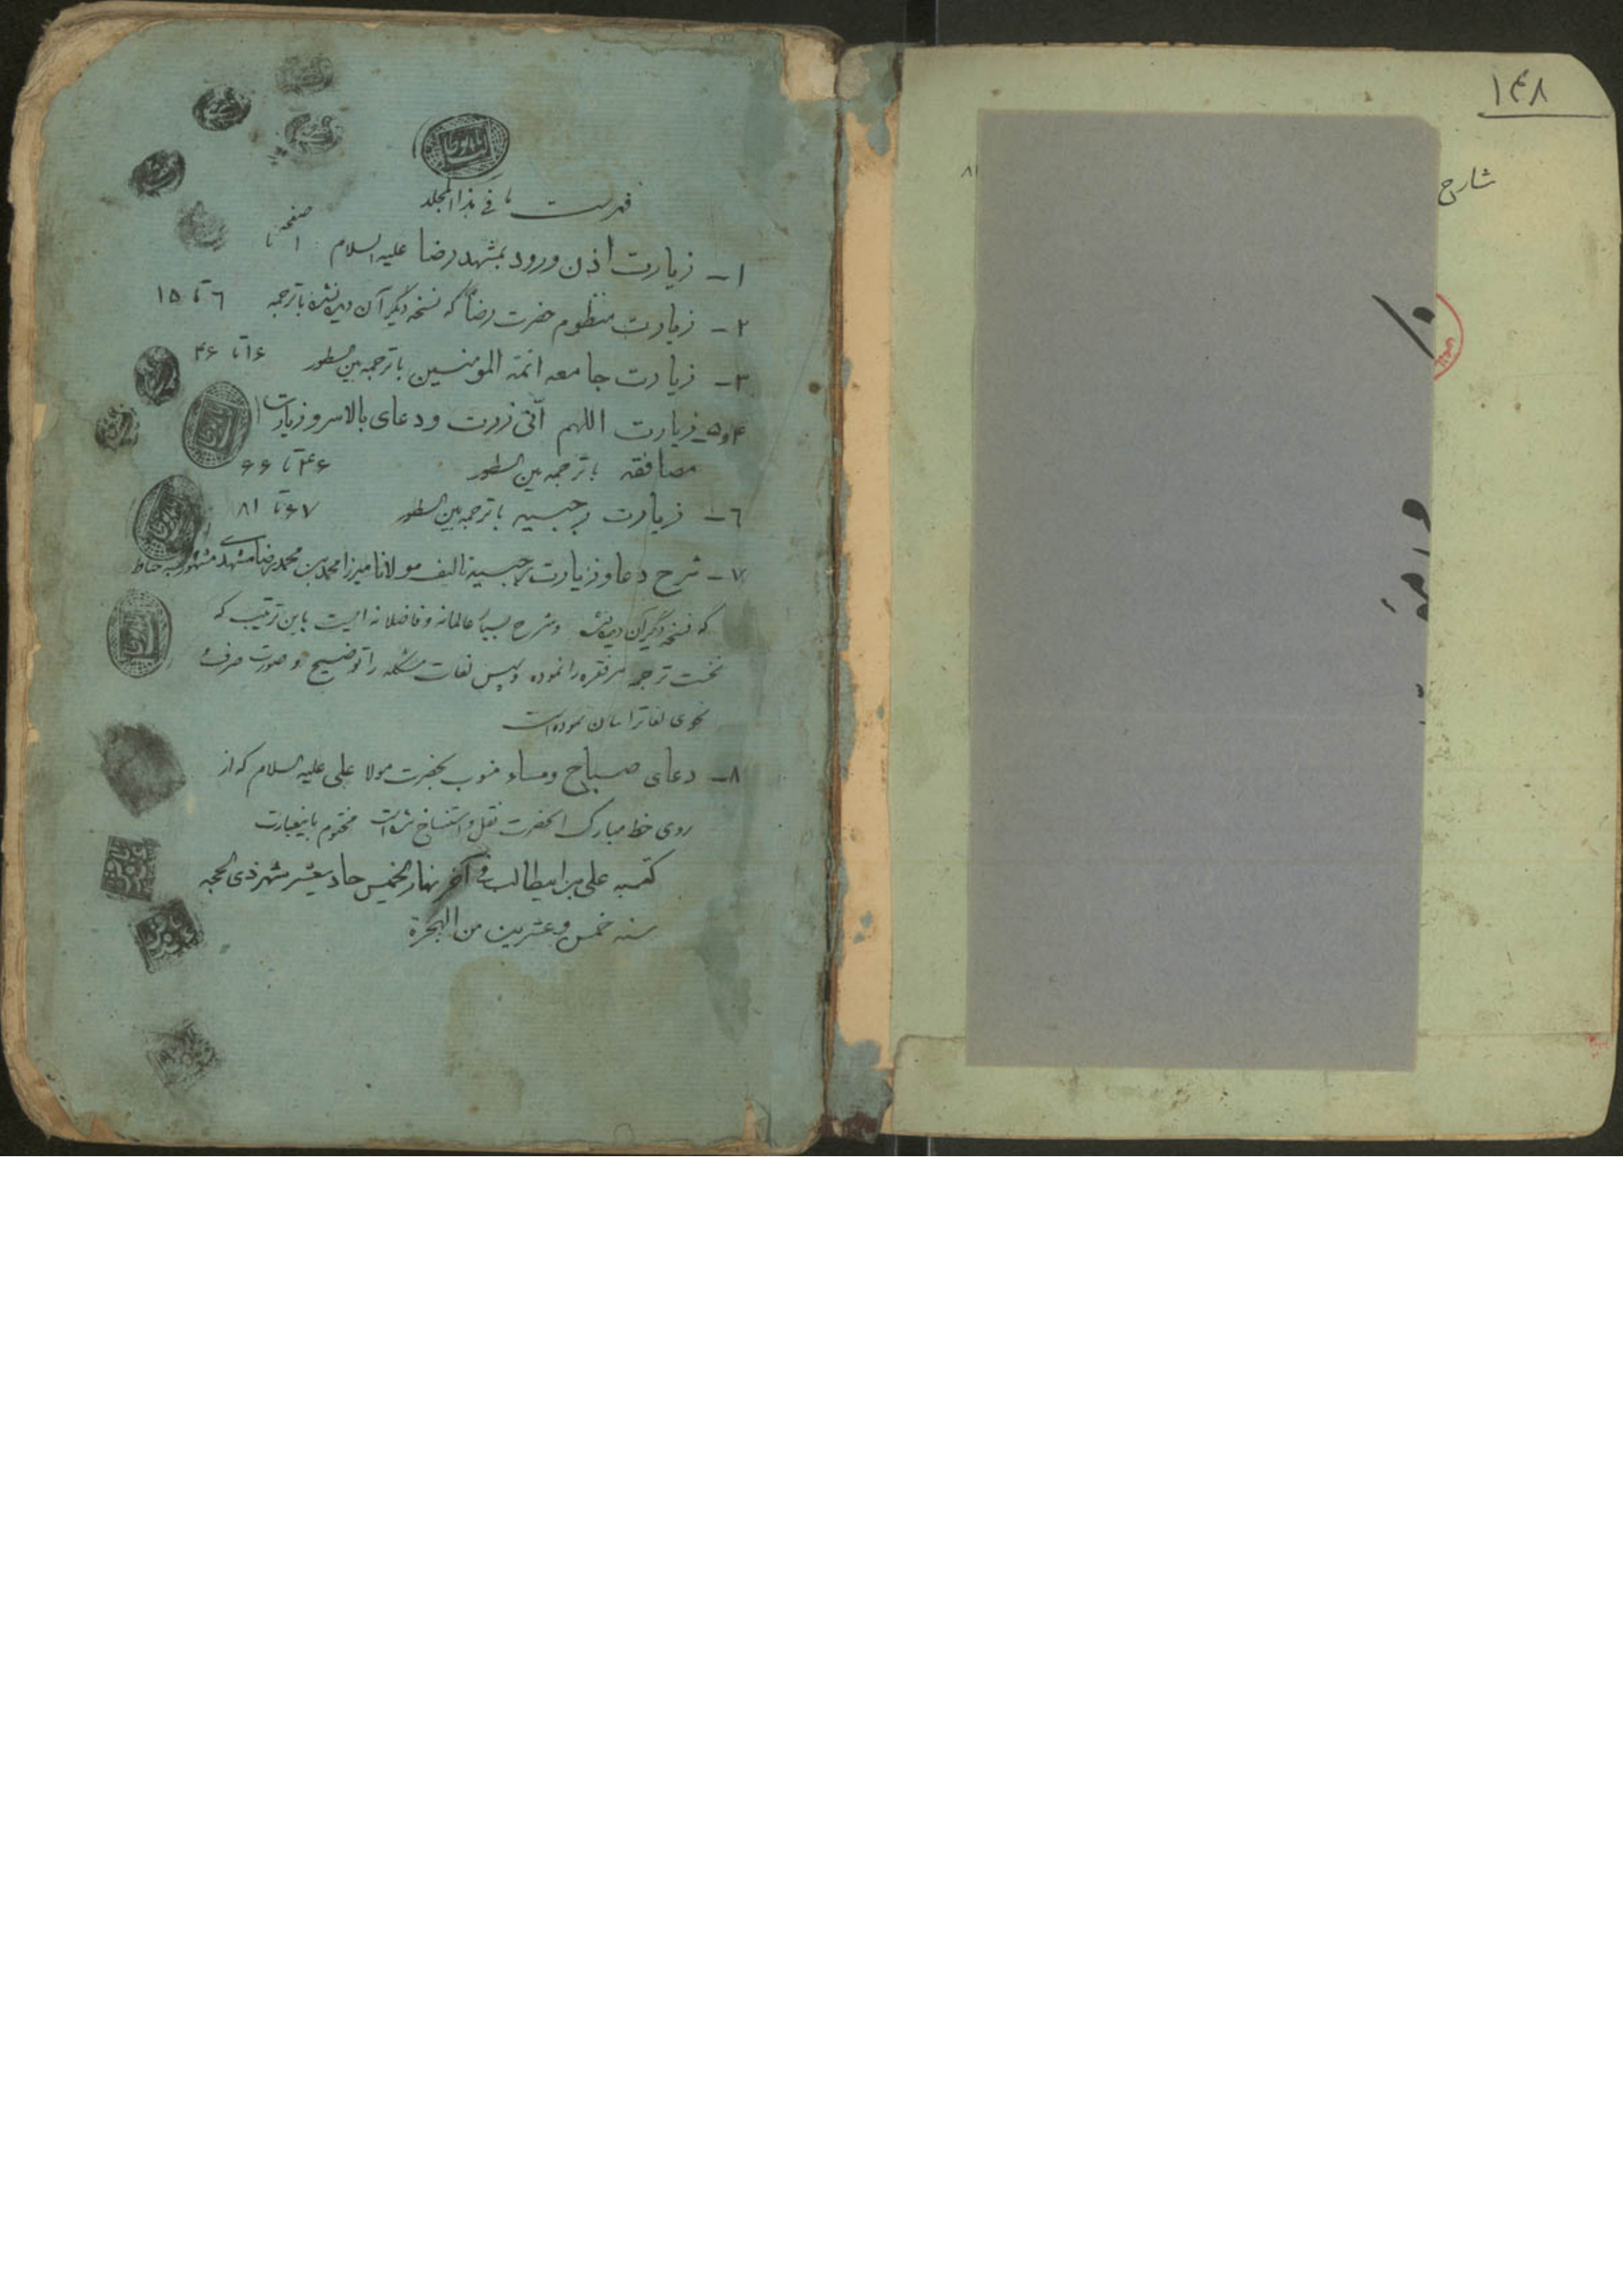 ۱۴۸
شارح
۸۱
فهرست ما فی هذا المجلد
۱ـ زیارت اذن ورود بمشهد رضا علیه السلام صفحه ۱ تا
۲ـ زیارت منظوم حضرت رضا که نسخه دیگر آن دیده نشده با ترجمه ٦ تا ۱۵
۳ـ زیارت جامعه ائمة المومنین با ترجمه بین السطور ۱۶ تا ۴۶
۴و۵ـ زیارت اللهم انی زرت و دعای بالاسر و زیارت
مصافقه با ترجمه بین السطور ۴۶ تا ۶۶
٦ـ زیارت رجبیه با ترجمه بین السطور ۶۷ تا ۸۱
۷ـ شرح دعا و زیارت رجبیه تالیف مولانا میرزا محمد بن محمد رضا مشهدی مشهور به
که نسخه دیگر آن دیده نشده و شرح بسیار عالمانه و فاضلانه ایست باین ترتیب که
نخست ترجمه هر فقره را نموده و سپس لغات مشکله را توضیح و صورت صرف و
نحوی لغاترا بیان نموده است
۸ـ دعای صباح و مساء منسوب بحضرت مولا علی علیه السلام که از
روی خط مبارک آنحضرت نقل و استنساخ شده است مختوم باینعبارت
کتبه علی بن ابیطالب فی آخر نهار الخمیس حادیعشر شهر ذی الحجه
سنه خمس و عشرین من الهجرة